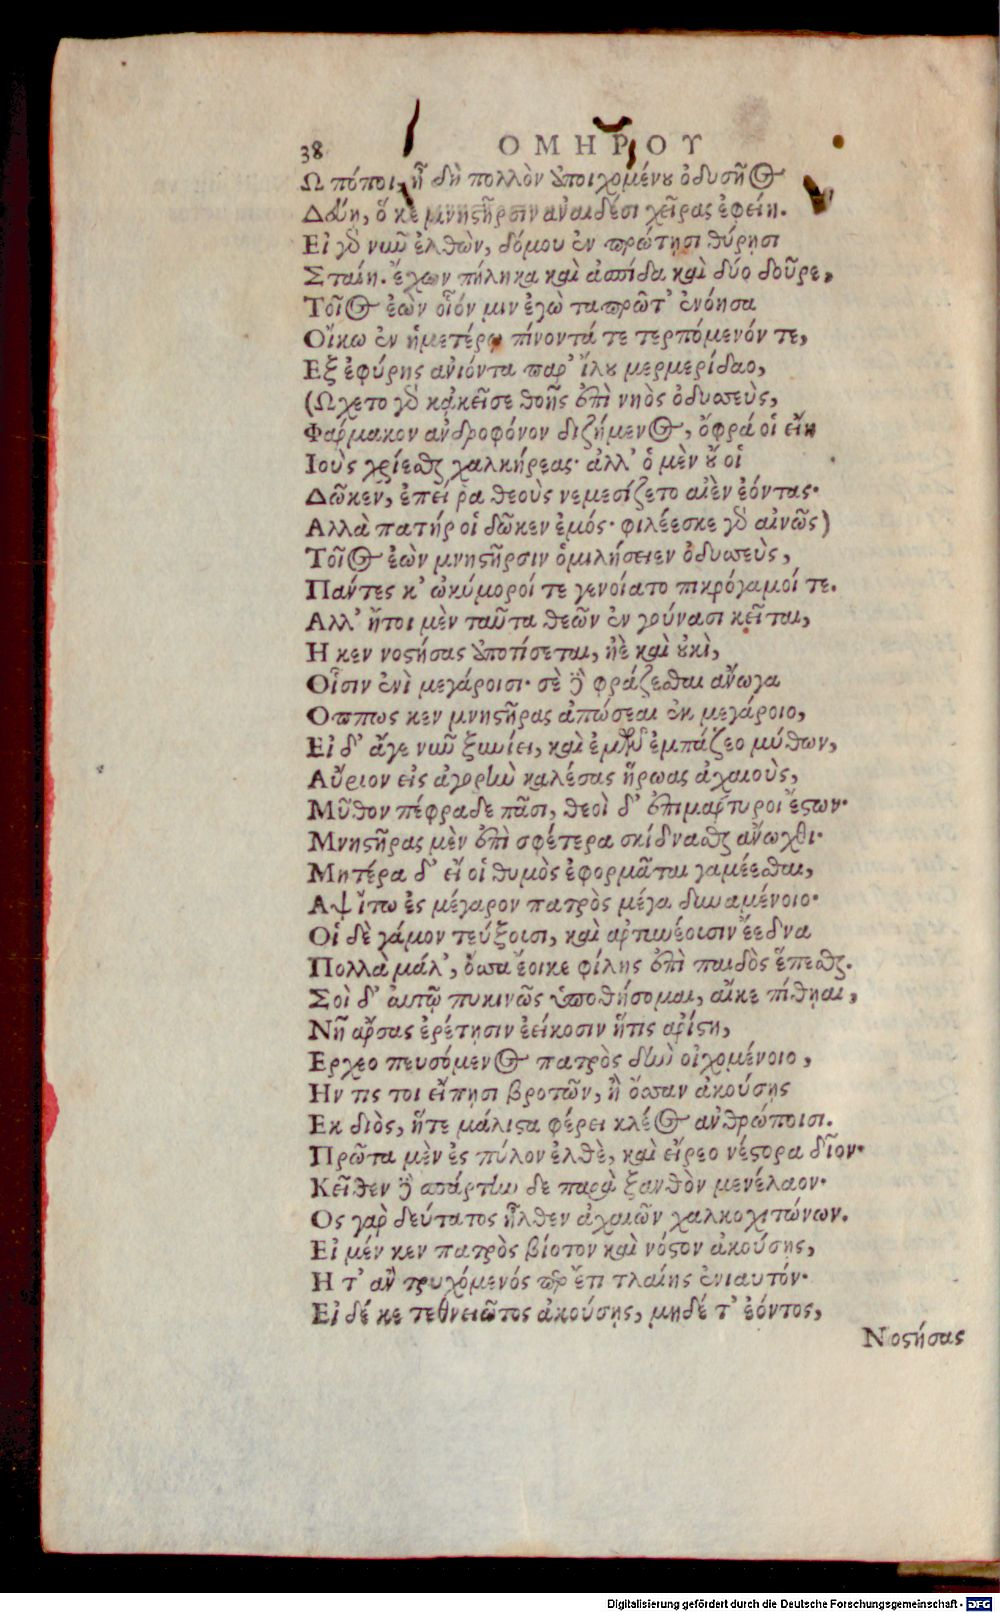 38 ΟΜΗΡΟΥ
Ω πόποι, ἦ δὴ πολλὸν ἀποιχομένου ὀδυσῆος
Δεύῃ, ὅ κε μνηστῆρσιν ἀναιδέσι χεῖρας ἐφείη.
Εἰ γὰρ νῦν ἐλθὼν, δόμου ἐν πρώτῃσι θύρῃσι
Σταίη. ἔχων πήληκα καὶ ἀσπίδα καὶ δύο δοῦρε,
Τοῖος ἐὼν οἷόν μιν ἐγὼ τὰ πρῶτ' ἐνόησα
Οἴκω ἐν ἡμετέρω πίνοντά τε τερπόμενόν τε,
Εξ ἐφύρης ἀνιόντα παρ' ἴλου μερμερίδαο,
(Ωχετο γὰρ κἀκεῖσε θοῆς ἐπὶ νηὸς ὀδυσσεὺς,
Φάρμακον ἀνδροφόνον διζήμενος, ὄφρά οἱ εἴη
Ιοὺς χρίεσθαι χαλκήρεας· ἀλλ' ὁ μὲν οὔ οἱ
Δῶκεν, ἐπεί ῥα θεοὺς νεμεσίζετο αἰὲν ἐόντας·
Αλλὰ πατήρ οἱ δῶκεν ἐμός· φιλέεσκε γὰρ αἰνῶς)
Τοῖος ἐὼν μνηστῆρσιν ὁμιλήσειεν ὀδυσσεὺς,
Πάντες κ' ὠκύμοροί τε γενοίατο πικρόγαμοί τε.
Αλλ' ἤτοι μὲν ταῦτα θεῶν ἐν γούνασι κεῖται,
Η κεν νοστήσας ἀποτίσεται, ἠὲ καὶ οὐκὶ,
Οἷσιν ἐνὶ μεγάροισι· σὲ δὲ φράζεσθαι ἄνωγα
Οππως κεν μνηστῆρας ἀπώσεαι ἐκ μεγάροιο,
Εἰ δ' ἄγε νῦν ξυνίει, καὶ ἐμῶν ἐμπάζεο μύθων,
Αὔριον εἰς ἀγορὴν καλέσας ἥρωας ἀχαιοὺς,
Μῦθον πέφραδε πᾶσι, θεοὶ δ' ἐπιμάρτυροι ἔστων·
Μνηστῆρας μὲν ἐπὶ σφέτερα σκίδνασθαι ἄνωχθι·
Μητέρα δ' εἴ οἱ θυμὸς ἐφορμᾶται γαμέεσθαι,
Αψ ἴτω ἐς μέγαρον πατρὸς μέγα δυναμένοιο·
Οἱ δὲ γάμον τεύξοισι, καὶ ἀρτυνέοισιν ἔεδνα
Πολλὰ μάλ', ὅσσα ἔοικε φίλης ἐπὶ παιδὸς ἕπεσθαι.
Σοὶ δ' αὐτῷ πυκινῶς ὑποθήσομαι, αἴκε πίθηαι,
Νῆ ἄρσας ἐρέτησιν ἐείκοσιν ἥτις ἀρίστη,
Ερχεο πευσόμενος πατρὸς δὴν οἰχομένοιο,
Ην τις τοι εἴπησι βροτῶν, ἢ ὄσσαν ἀκούσης
Εκ διὸς, ἥτε μάλιστα φέρει κλέος ἀνθρώποισι.
Πρῶτα μὲν ἐς πύλον ἐλθὲ, καὶ εἴρεο νέστορα δῖον·
Κεῖθεν δὲ σπάρτην δε παρὰ ξανθὸν μενέλαον·
Ος γὰρ δεύτατος ἦλθεν ἀχαιῶν χαλκοχιτώνων.
Εἰ μέν κεν πατρὸς βίοτον καὶ νόστον ἀκούσῃς,
Η τ' ἂν τρυχόμενός περ ἔτι τλαίης ἐνιαυτόν·
Εἰ δέ κε τεθνειῶτος ἀκούσῃς, μηδέ τ' ἐόντος,
Νοστήσας
Digitalisierung gefördert durch die Deutsche Forschungsgemeinschaft - DFG